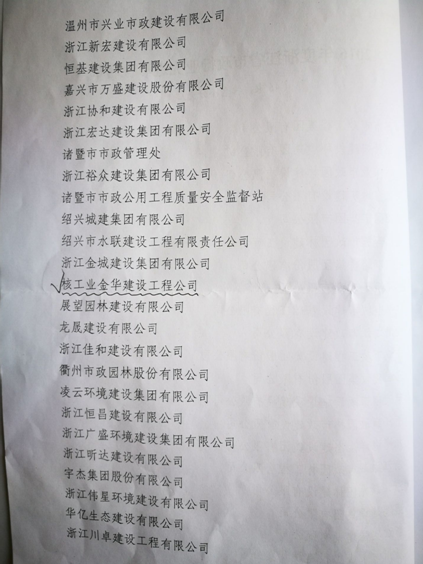 温州市兴业市政建设有限公司
浙江新宏建设有限公司
恒基建设集团有限公司
嘉兴市万盛建设股份有限公司
浙江协和建设有限公司
浙江宏达建设集团有限公司
诸暨市市政管理处
浙江裕众建设集团有限公司
诸暨市市政公用工程质量安全监督站
绍兴城建集团有限公司
绍兴市水联建设工程有限责任公司
浙江金城建设集团有限公司
核工业金华建设工程公司
展望园林建设有限公司
龙晟建设有限公司
浙江佳和建设有限公司
衢州市政园林股份有限公司
凌云环境建设集团有限公司
浙江恒昌建设有限公司
浙江广盛环境建设集团有限公司
浙江昕达建设有限公司
宇杰集团股份有限公司
浙江伟星环境建设有限公司
华亿生态建设有限公司
浙江川卓建设工程有限公司